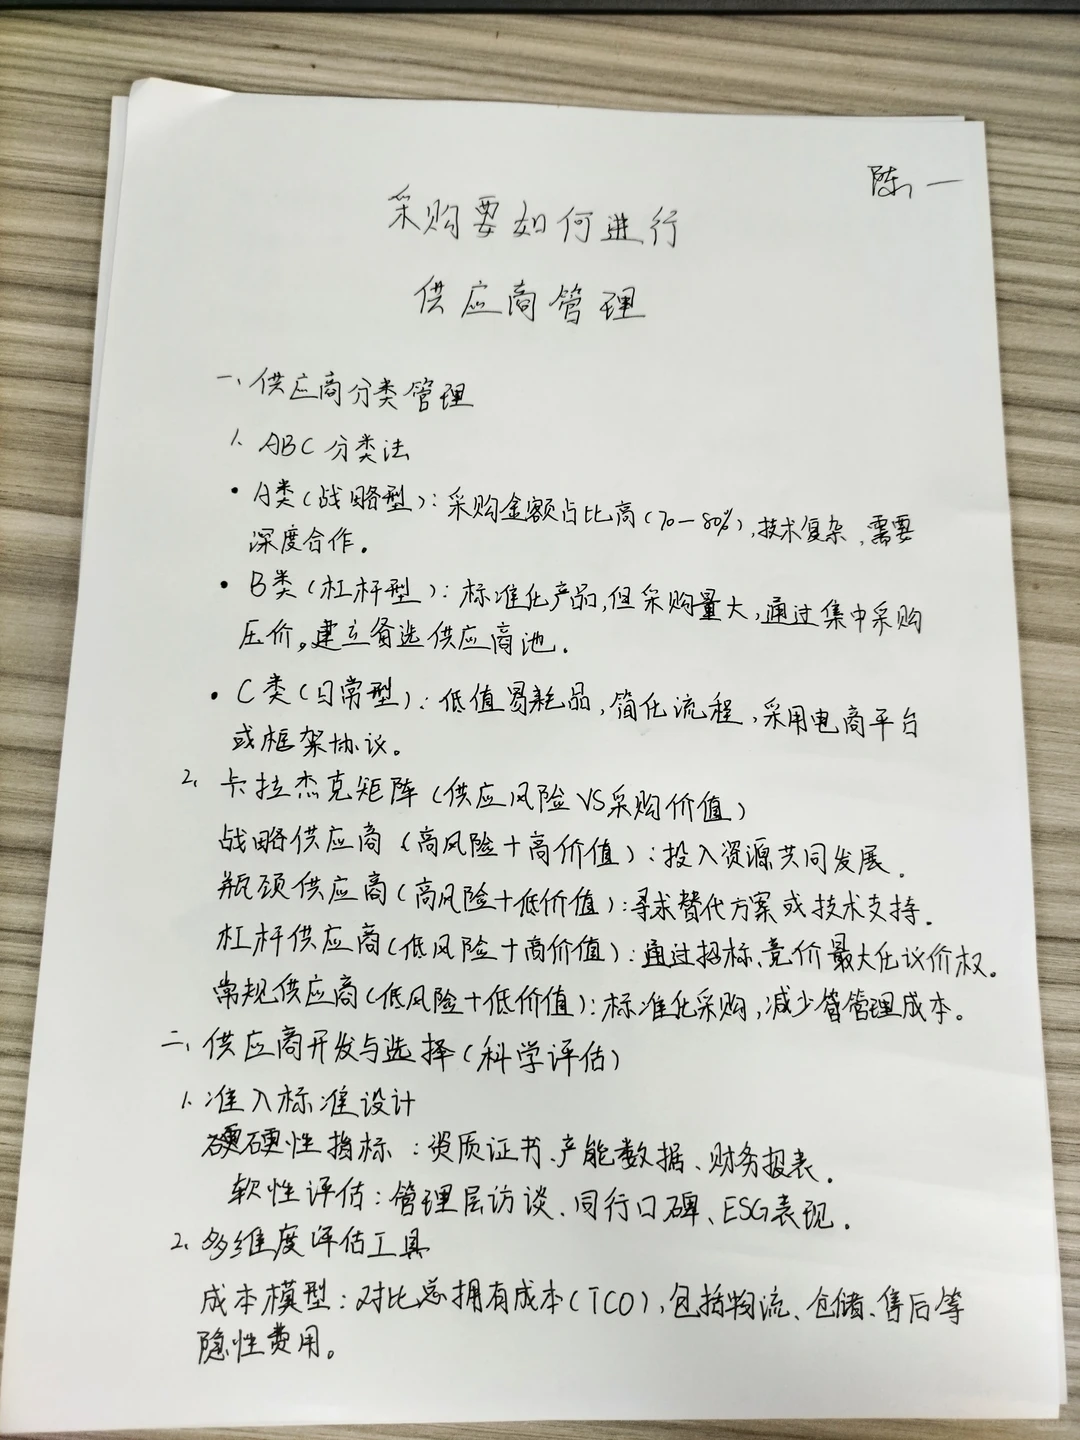 陈一
采购要如何进行
供应商管理
一、供应商分类管理
1. ABC分类法
• A类(战略型):采购金额占比高(70-80%),技术复杂,需要
深度合作。
• B类(杠杆型):标准化产品,但采购量大,通过集中采购
压价,建立备选供应商池。
• C类(日常型):低值易耗品,简化流程,采用电商平台
或框架协议。
2. 卡拉杰克矩阵(供应风险VS采购价值)
战略供应商(高风险+高价值):投入资源共同发展.
瓶颈供应商(高风险+低价值):寻求替代方案或技术支持.
杠杆供应商(低风险+高价值):通过招标、竞价最大化议价权。
常规供应商(低风险+低价值):标准化采购,减少管管理成本。
二、供应商开发与选择(科学评估)
1. 准入标准设计
硬硬性指标:资质证书、产能数据、财务报表.
软性评估:管理层访谈、同行口碑、ESG表现.
2. 多维度评估工具
成本模型:对比总拥有成本(TCO),包括物流、仓储、售后等
隐性费用。